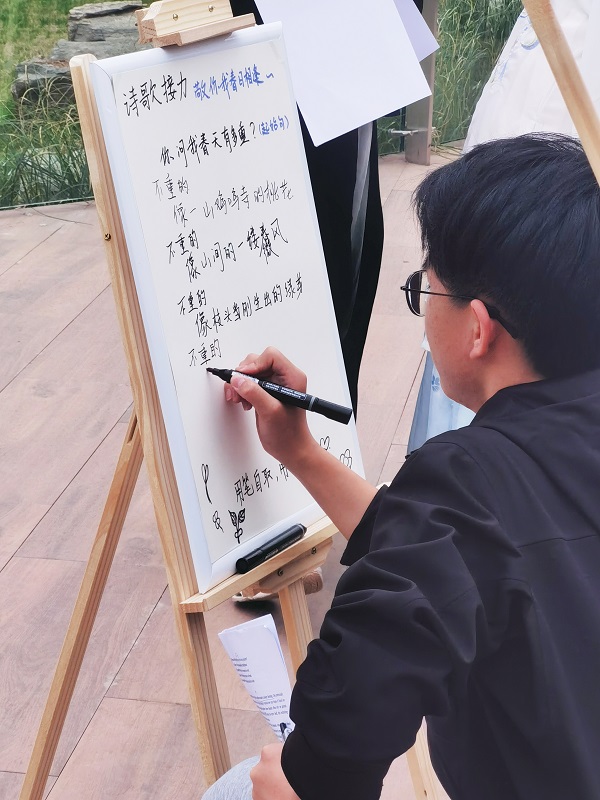 诗歌接力 敬你我春日相逢~
你问我春天有多重?(起始句)
不重的
像一山鸡鸣寺的桃花
不重的
像山间的一缕春风
不重的
像枝头刚刚生出的绿芽
不重的
用笔自取,用